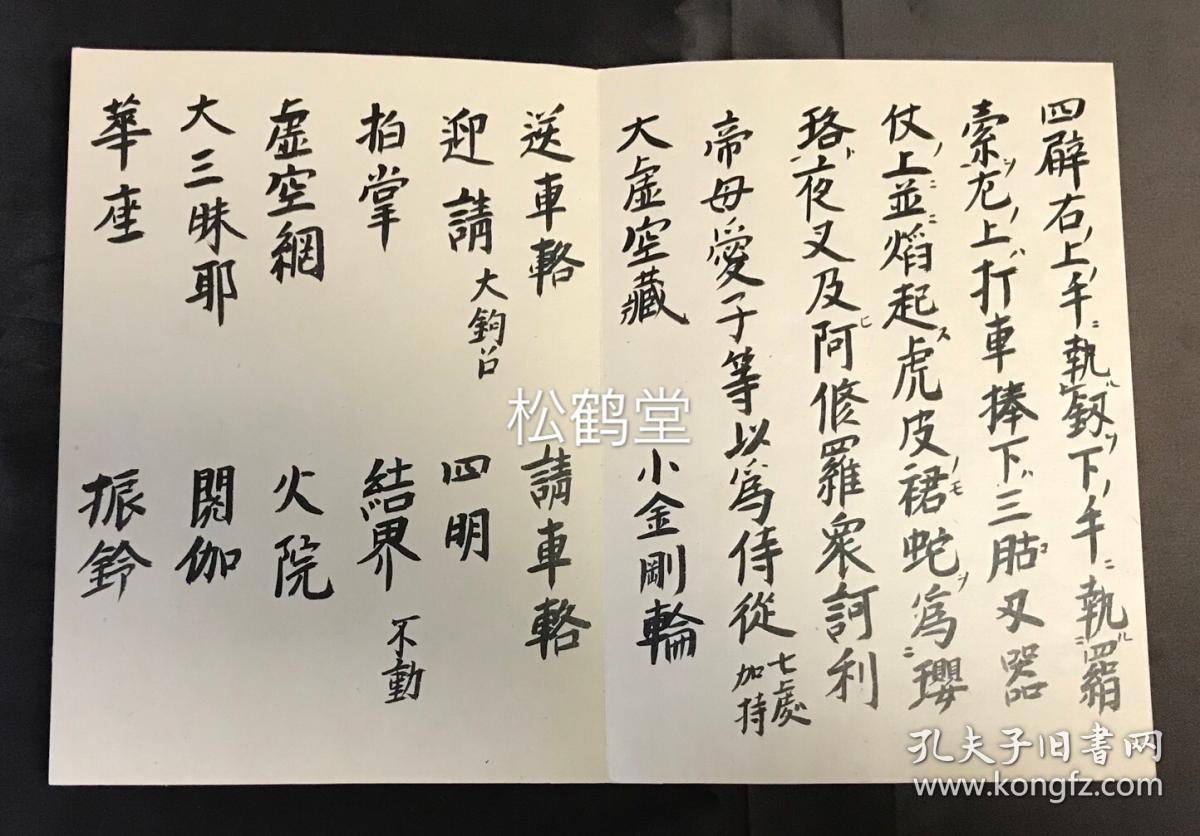 四臂右上手ニ執ル釼ヲ下ノ手ニ執ル羂
索ヲ左ノ上ハ打車捧下ハ三胎叉器
仗ノ上ニ並ニ焰起ス虎皮裙ノモ蛇ヲ為ニ瓔
珞ト夜叉及ヒ阿修羅衆訶利
帝母愛子等以為侍從 七處加持
大虚空藏 小金剛輪
送車輅 請車輅
迎請 大鉤召 四明
拍掌 結界 不動
虚空網 火院
大三昧耶 閼伽
華座 振鈴
松鹤堂
孔夫子旧书网
www.kongfz.com